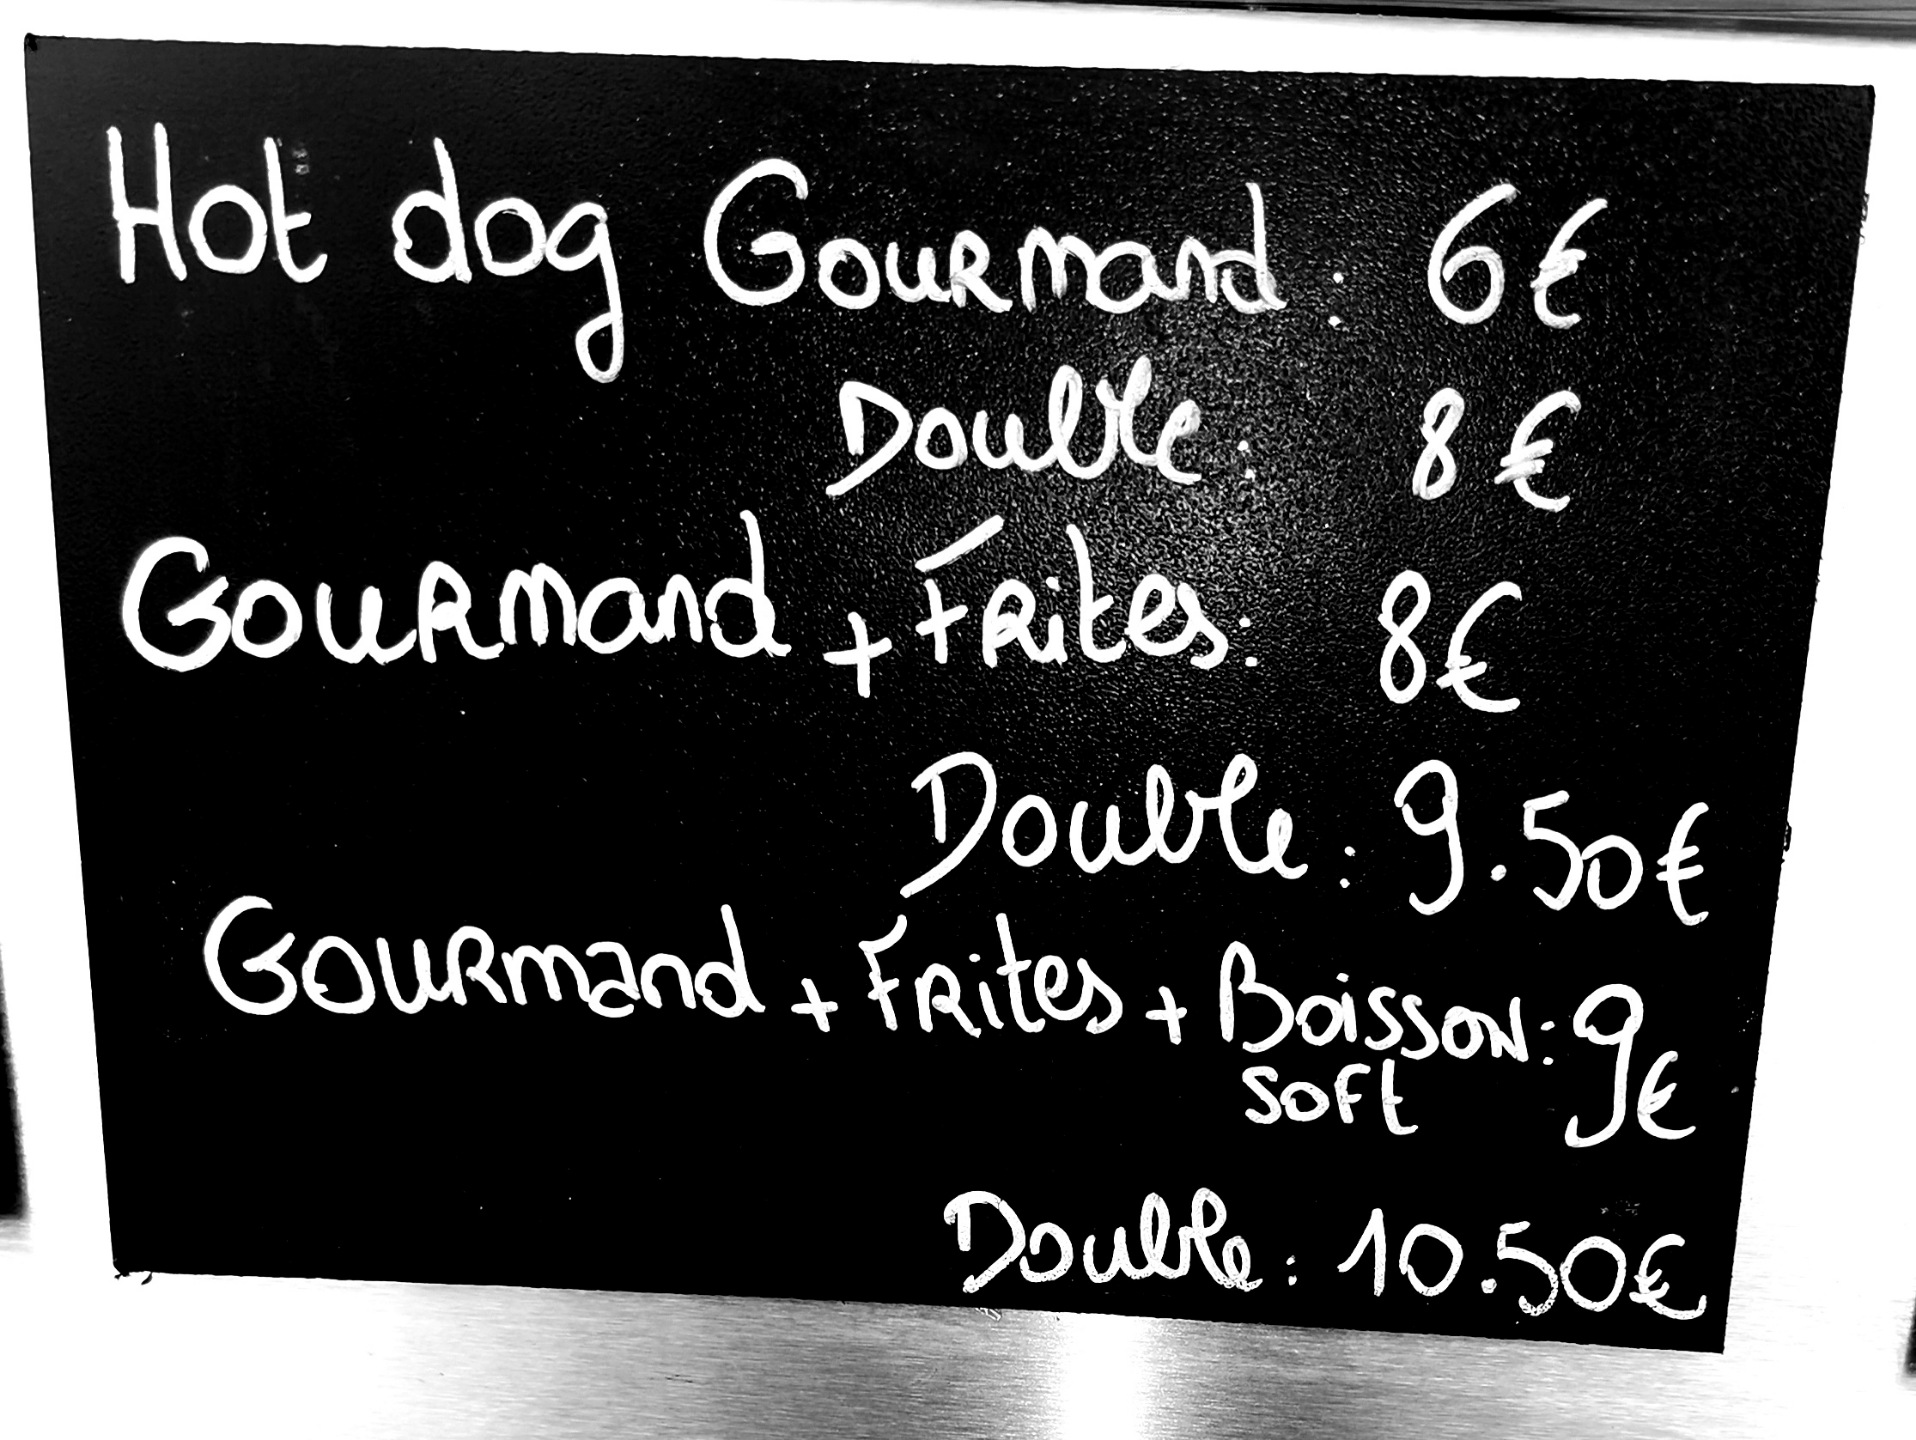 Hot dog Gourmand : 6€
Double : 8€
Gourmand + Frites : 8€
Double : 9.50€
Gourmand + Frites + Boisson : 9€
soft
Double : 10.50€